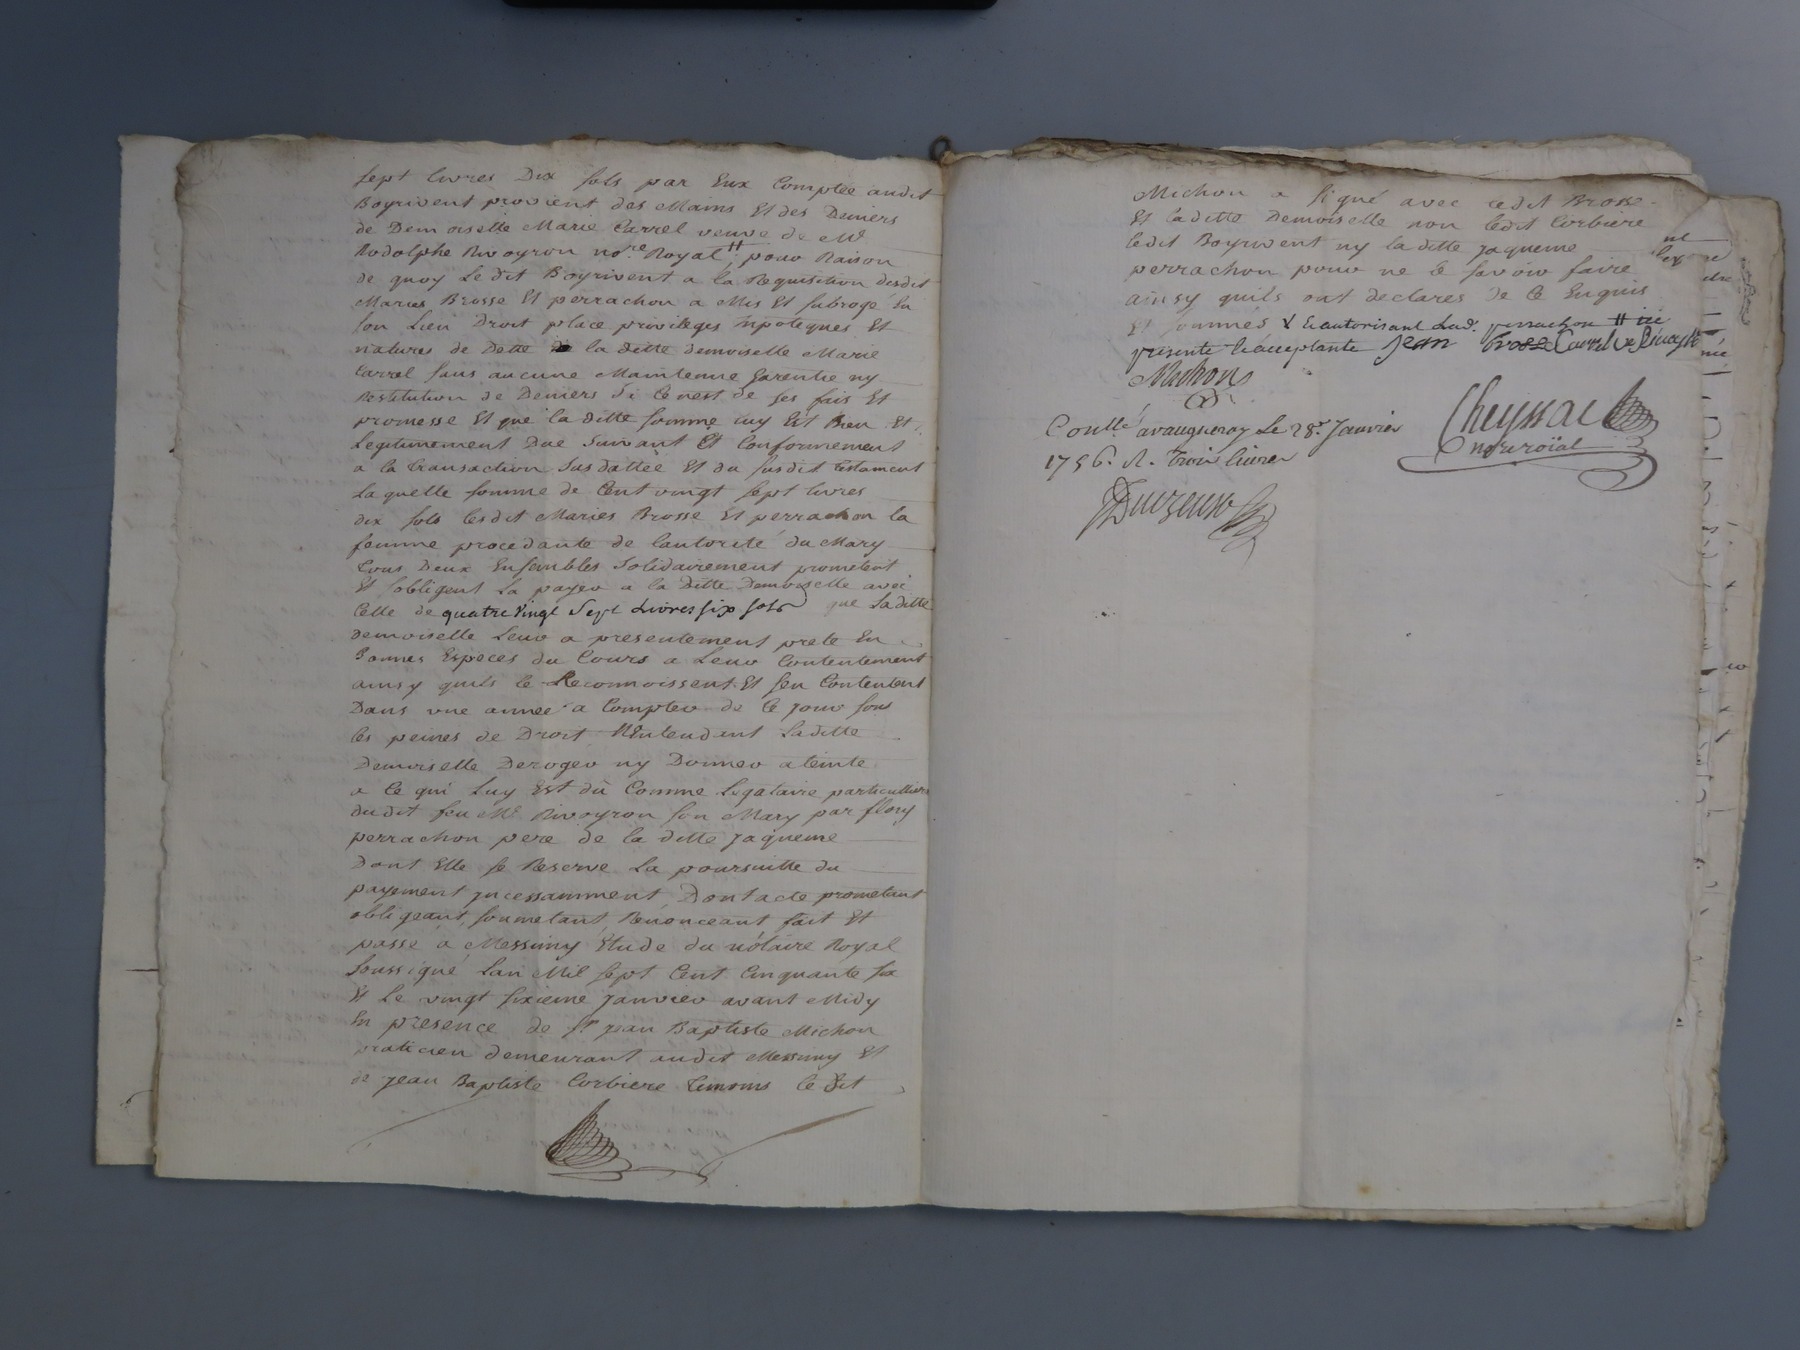 sept livres Dix sols par Eux Comptée audit
Boyrivent provient des Mains Et des Deniers
de Demoiselle Marie Carrel veuve de Mr
Rodolphe Rivoyron nore. Royal # pour Raison
de quoy Le dit Boyrivent a la Requisition desdit
Maries Brosse Et perrachon a Mis Et subrogé En
son Lieu Droit place privileges hipoteques Et
natures de Dette la ditte demoiselle Marie
Carrel sans aucune Maintenue garentie ny
Restitution de Deniers si Ce nest de ses fais Et
promesse Et que la ditte somme luy Est Bien Et
Legitimement Due suivant Et Conformement
a la transaction susdattée Et du susdit testament
Laquelle somme de Cent vingt sept livres
dix sols lesdit Maries Brosse Et perrachon la
femme procedante de lautorité du Mary
tous Deux Ensembles solidairement prometent
Et sobligent La payer a la ditte Demoiselle avec
Celle de quatre vingt Sept Livres six sols que Laditte
demoiselle Leur a presentement preté En
Bonnes Especes du Cours a Leur Contentement
ainsy quils le Reconnoissent Et sen Contentent
Dans une année a Compter de Ce jour sous
les peines de Droit NEntendent Laditte
Demoiselle Deroger ny Donner ateinte
a Ce qui Luy Est dû Comme Legataire particulliere
dudit feu Mr Rivoyron son Mary par flory
perrachon pere de la ditte jaqueme
Dont Elle se Reserve La poursuitte du
payement jncessamment, Dont acte prometant
obligeant, soumetant, Renonceant fait Et
passé à Messimy Etude du nótaire Royal
soussigné Lan Mil sept Cent Cinquante six
Et Le vingt sixieme janvier avant Midy
En presence de sr. jean Baptiste Michon
praticien demeurant audit Messimy Et
de jean Baptiste Corbiere temoins le dit
Michon a signé avec ledit Brosse
Et laditte Demoiselle non ledit Corbiere
ledit Boyrivent ny la ditte jaqueme
perrachon pour ne le savoir faire
ainsy quils ont declares de Ce Enquis
Et sommés & Lautorisant Lad. perrachon # icy
presente & acceptante Jean Brosse Carrel
Michon
Cheyssac
nore roïal
Coullé a vaugneray Le 28e. Janvier
1756. R. trois livres